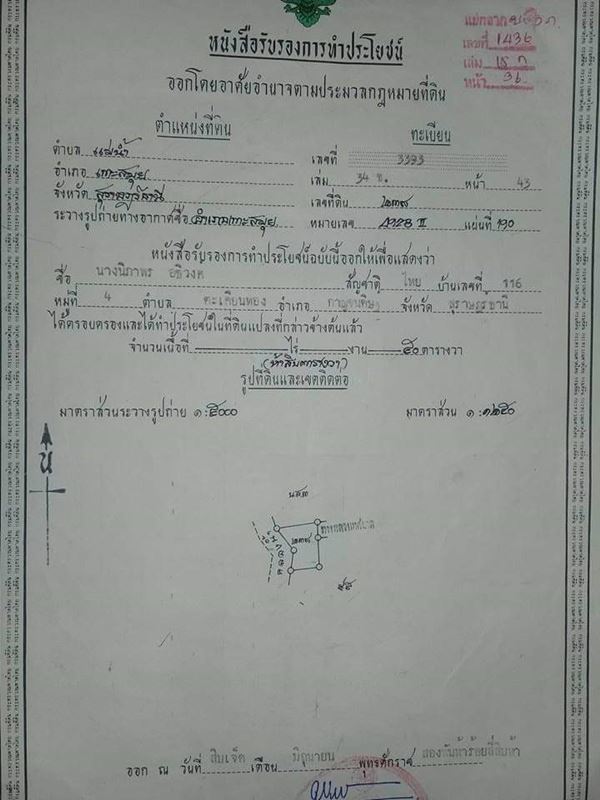 แยกจาก
เลขที่ 1436
เล่ม 15 ก
หน้า 36
หนังสือรับรองการทำประโยชน์
ออกโดยอาศัยอำนาจตามประมวลกฎหมายที่ดิน
ตำแหน่งที่ดิน
ตำบล แม่น้ำ
อำเภอ เกาะสมุย
จังหวัด สุราษฎร์ธานี
ระวางรูปถ่ายทางอากาศชื่อ อำเภอเกาะสมุย
ทะเบียน
เลขที่ 3393
เล่ม 34 ข. หน้า 43
เลขที่ดิน ๒๓๗
หมายเลข ๔๙๒๘ II แผ่นที่ ๑๙๐
หนังสือรับรองการทำประโยชน์ฉบับนี้ออกให้เพื่อแสดงว่า
ชื่อ นางนิภาพร สัญชาติ ไทย บ้านเลขที่ 116
หมู่ที่ 4 ตำบล ตะเคียนทอง อำเภอ กาญจนดิษฐ์ จังหวัด สุราษฎร์ธานี
ได้ครอบครองและได้ทำประโยชน์ในที่ดินแปลงที่กล่าวข้างต้นแล้ว
จำนวนเนื้อที่ ไร่ งาน ๕๐ ตารางวา
(ห้าสิบตารางวา)
รูปที่ดินและเขตติดต่อ
มาตราส่วนระวางรูปถ่าย ๑:๕๐๐๐ มาตราส่วน ๑:๑๒๕๐
น
น.ส.๓
๒๓๗
๕๕
ออก ณ วันที่ สิบเจ็ด เดือน มิถุนายน พุทธศักราช สองพันห้าร้อยสี่สิบห้า